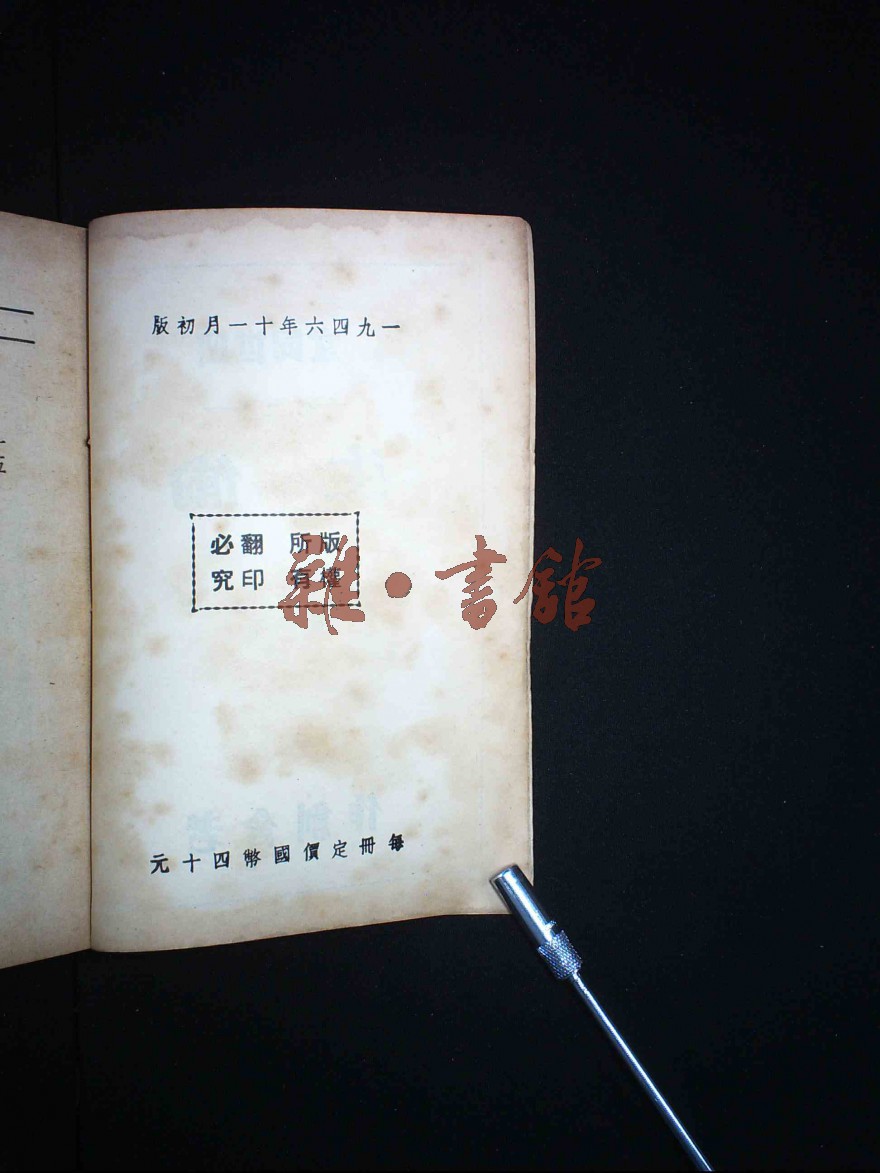 一九四六年十一月初版
版權所有
翻印必究
雜·書館
每冊定價國幣四十元